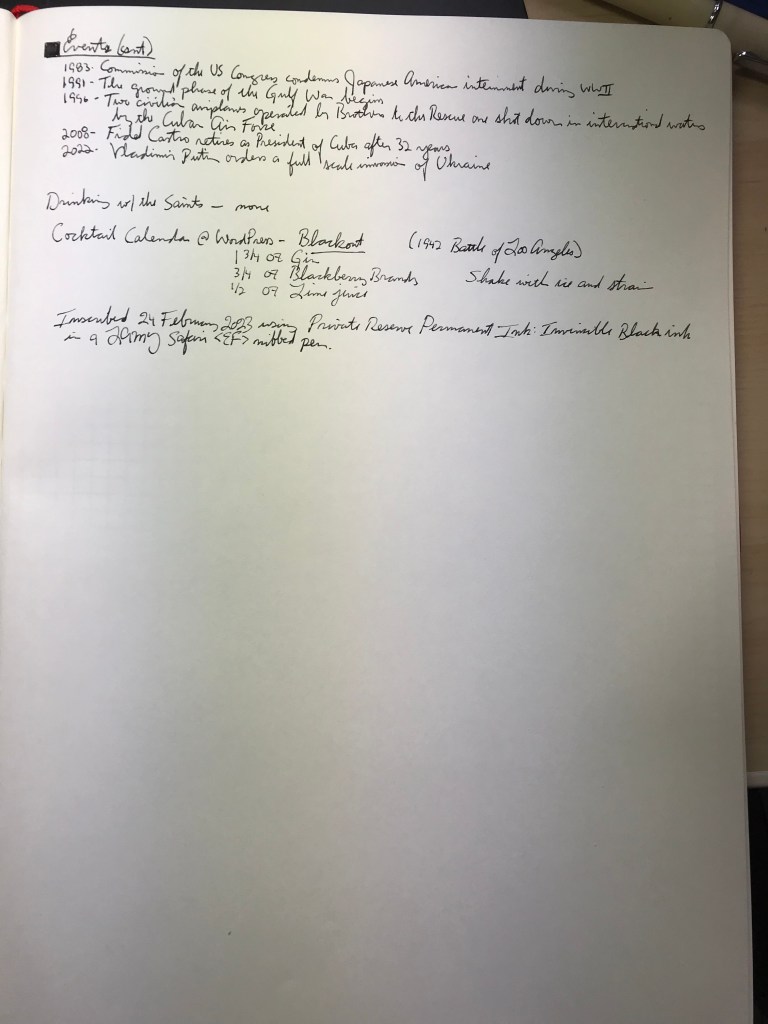 Events (cont)
1983- Commission of the US Congress condemns Japanese American internment during WWII
1991- The ground phase of the Gulf War begins
1996- Two civilian airplanes operated by Brothers to the Rescue are shot down in international waters
by the Cuban Air Force
2008- Fidel Castro retires as President of Cuba after 32 years
2022- Vladimir Putin orders a full scale invasion of Ukraine
Drinking w/ the Saints - none
Cocktail Calendar @ WordPress - Blackout (1942 Battle of Los Angeles)
1 3/4 oz Gin
3/4 oz Blackberry Brandy Shake with ice and strain
1/2 oz Lime juice
Inscribed 24 February 2023 using Private Reserve Permanent Ink: Invincible Black ink
in a Lamy Safari <EF> nibbed pen.